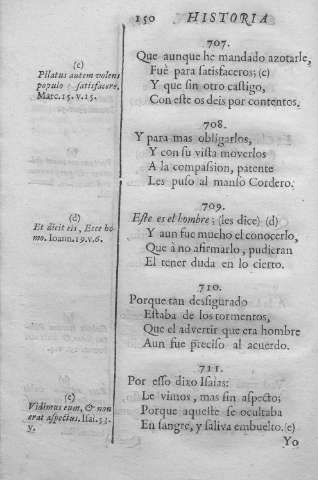 150 HISTORIA
707.
Que aunque he mandado azotarle,
Fuè para satisfaceros; (c)
Y que sin otro castigo,
Con este os deis por contentos.
(c)
Pilatus autem volens
populo satisfacere.
Marc. 15. v. 15.
708.
Y para mas obligarlos,
Y con su vista moverlos
A la compassion, patente
Les puso al manso Cordero.
709.
Este es el hombre; (les dice) (d)
Y aun fue mucho el conocerlo,
Que à no afirmarlo, pudieran
El tener duda en lo cierto.
(d)
Et dicit eis, Ecce ho-
mo. Ioann. 19. v. 6.
710.
Porque tan desfigurado
Estaba de los tormentos,
Que el advertir que era hombre
Aun fue preciso al acuerdo.
711.
Por esso dixo Isaias:
Le vimos, mas sin aspecto;
Porque aqueste se ocultaba
En sangre, y saliva embuelto. (e)
(e)
Vidimus eum, & non
erat aspectus. Isai. 53.
v.
Yo